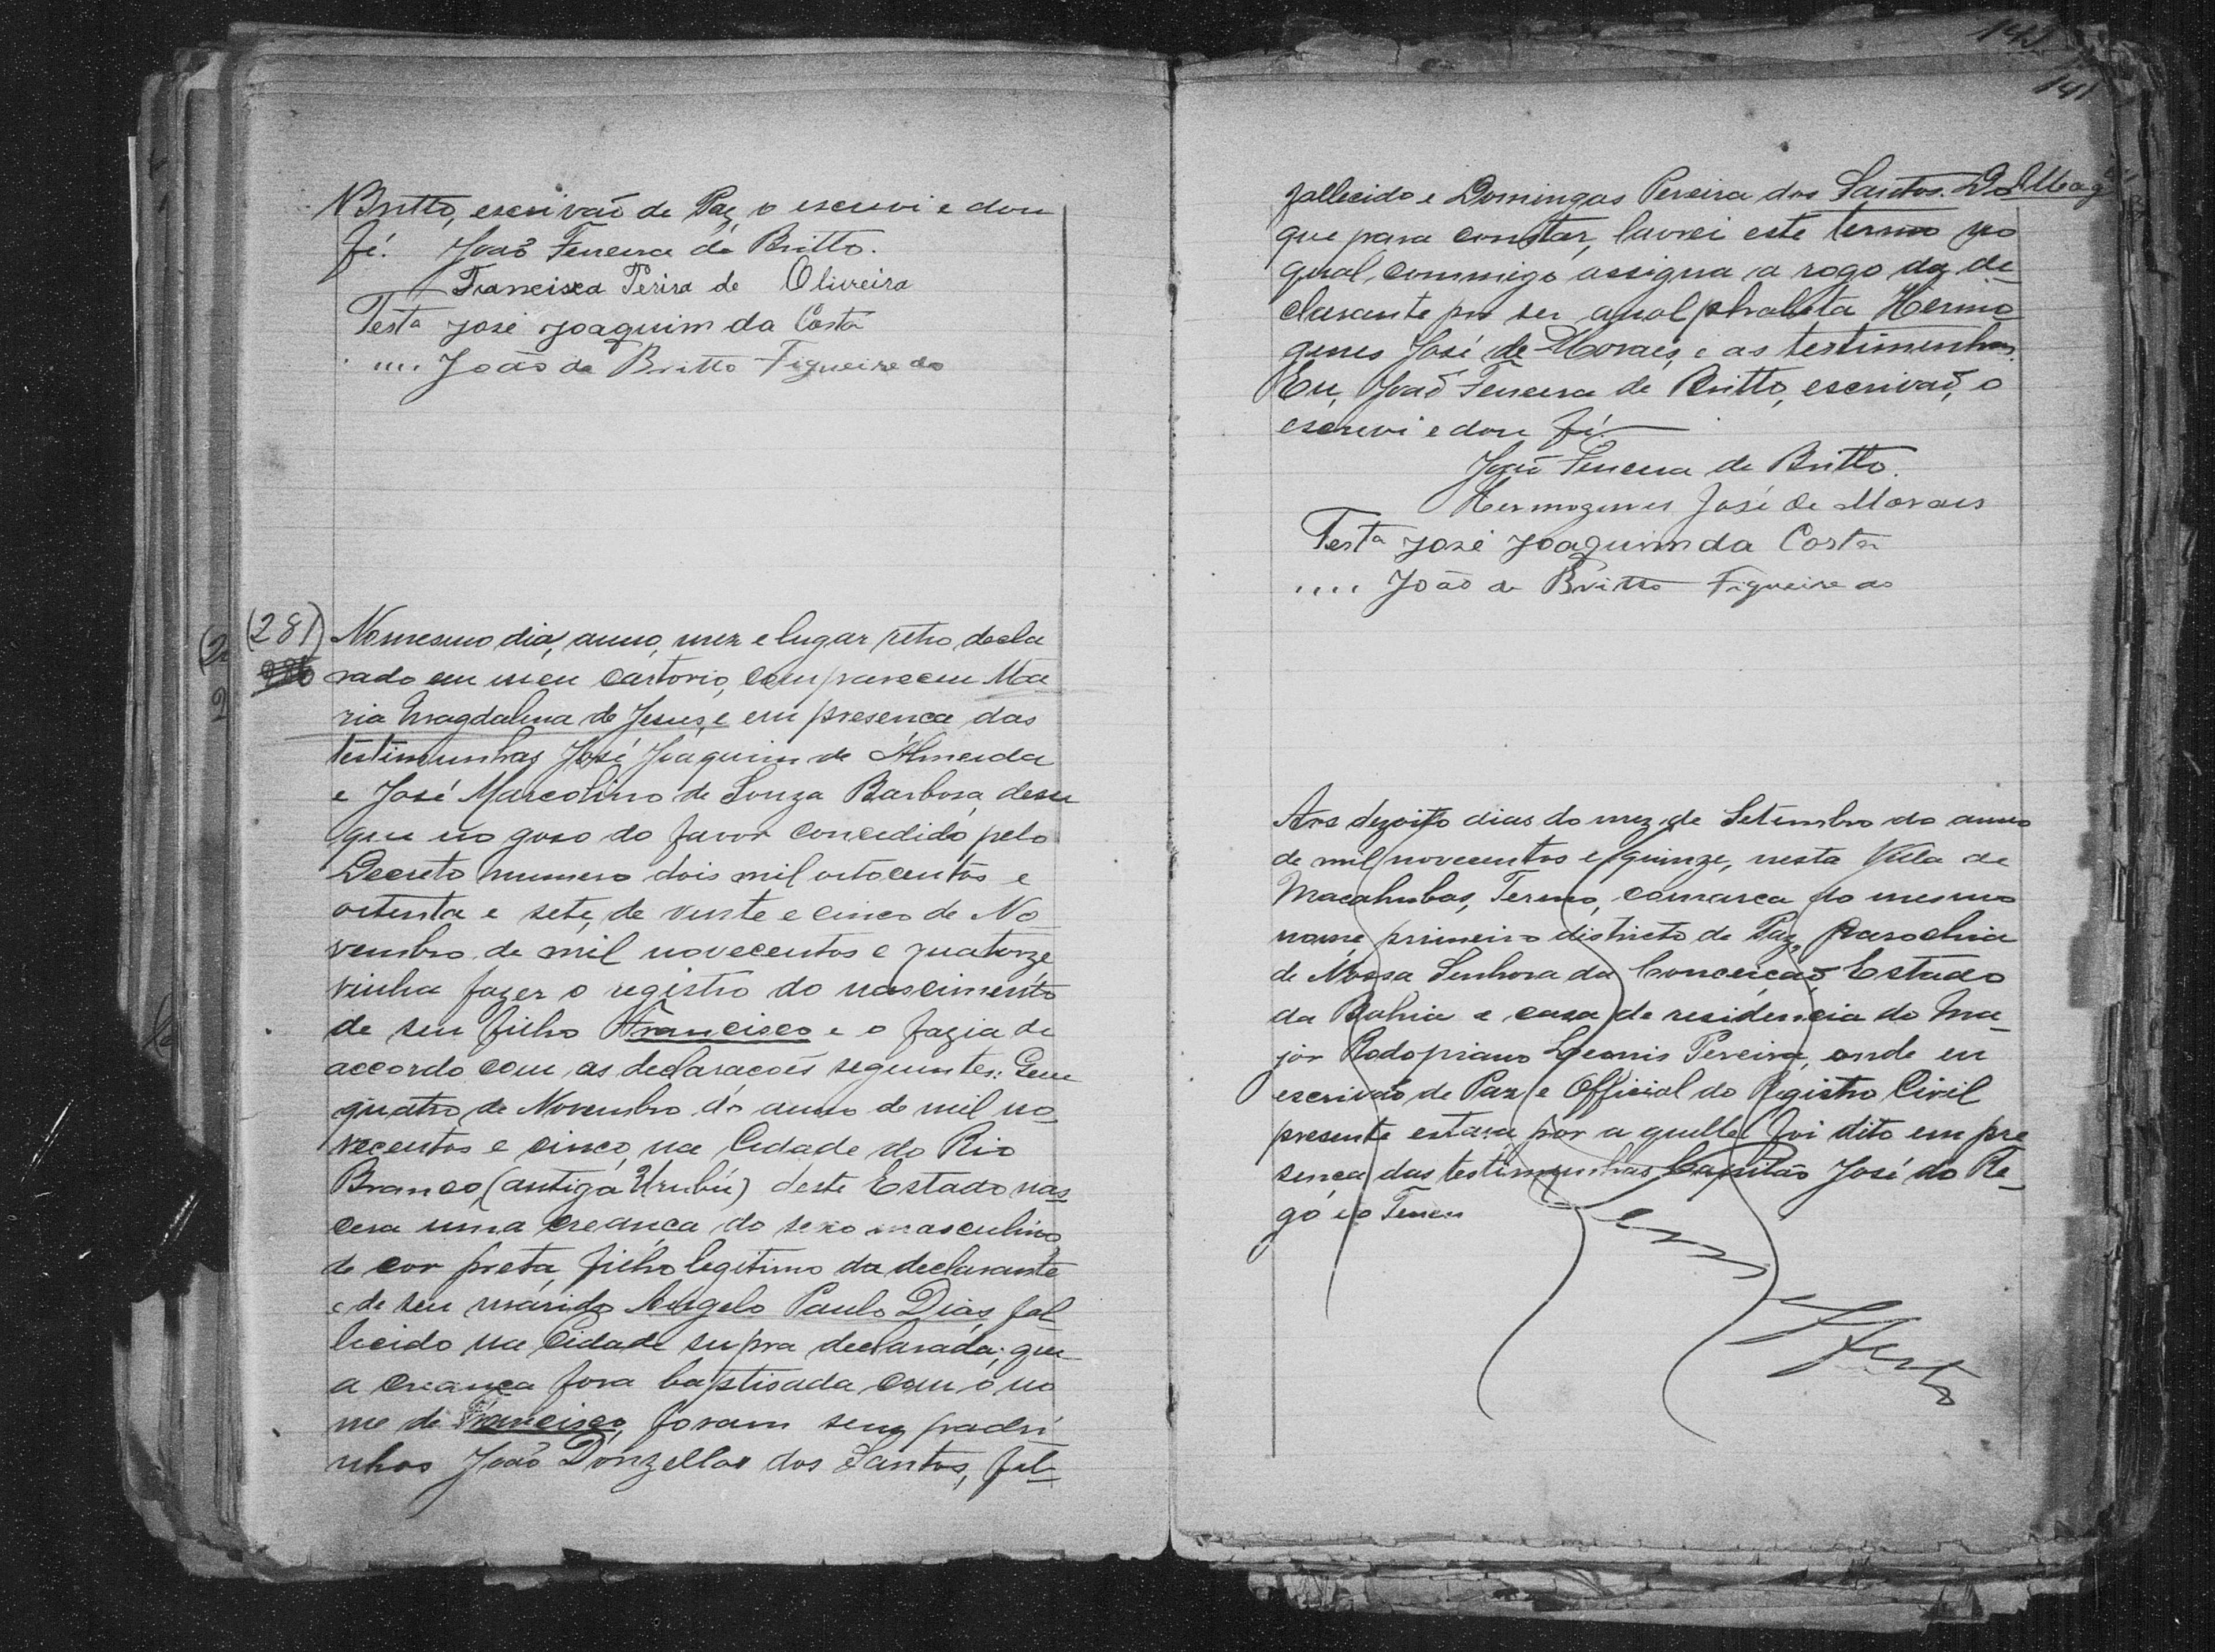 Britto, escrivão de Paz o escrevi e dou
fé. João Ferreira de Britto.
Francisca Perira de Oliveira
Testa José Joaquim da Costa
,,,, João de Britto Figueiredo
(281) No mesmo dia, anno, mez e lugar retro decla
rado em meu cartorio, compareceu Ma
ria Magdalena de Jesus, e em presença das
testimunhas José Joaquim de Almeida
e José Marcolino de Souza Barbosa, disse
que no goso do favor concedido pelo
Decreto numero dois mil oitocentos e
oitenta e sete, de vinte e cinco de No
vembro de mil novecentos e quatorze
vinha fazer o registro do nascimento
de seu filho Francisco e o fazia de
accordo com as declarações seguintes: Que
quatro de Novembro do anno de mil no
vecentos e cinco, na Cidade do Rio
Branco (antiga Urubú) deste Estado nas
cera uma creança do sexo masculino,
de cor preta, filho legitimo da declarante
e de seu marido Angelo Paulo Dias, fal
lecido na Cidade supra declarada; que
a creança fora baptisada com o no
me de Francisco, foram seus padri
nhos João Donzellas dos Santos, fal
141
fallecido e Domingas Pereira dos Santos. Do
que para constar, lavrei este termo no
qual commigo assigna a rogo da de
clarante por ser analphabeta Hermo
genes José de Moraes, e as testimunhas.
Eu, João Ferreira de Britto, escrivão, o
escrevi e dou fé.
João Ferreira de Britto.
Hermogenes José de Moraes
Testa José Joaquim da Costa
,,,, João de Britto Figueiredo
Aos dezoito dias do mez de Setembro do anno
de mil novecentos e quinze, nesta Villa de
Macahubas, Termo, comarca do mesmo
nome primeiro districto de Paz, Parochia
de Nossa Senhora da Conceição, Estado
da Bahia e casa de residencia do Ma
jor Rodopiano Leonis Pereira, onde eu
escrivão de Paz e Official do Registro Civil
presente estava por a quelle foi dito em pre
sença das testimunhas Capitão José do Re
go e o Tenen
Sem effeito